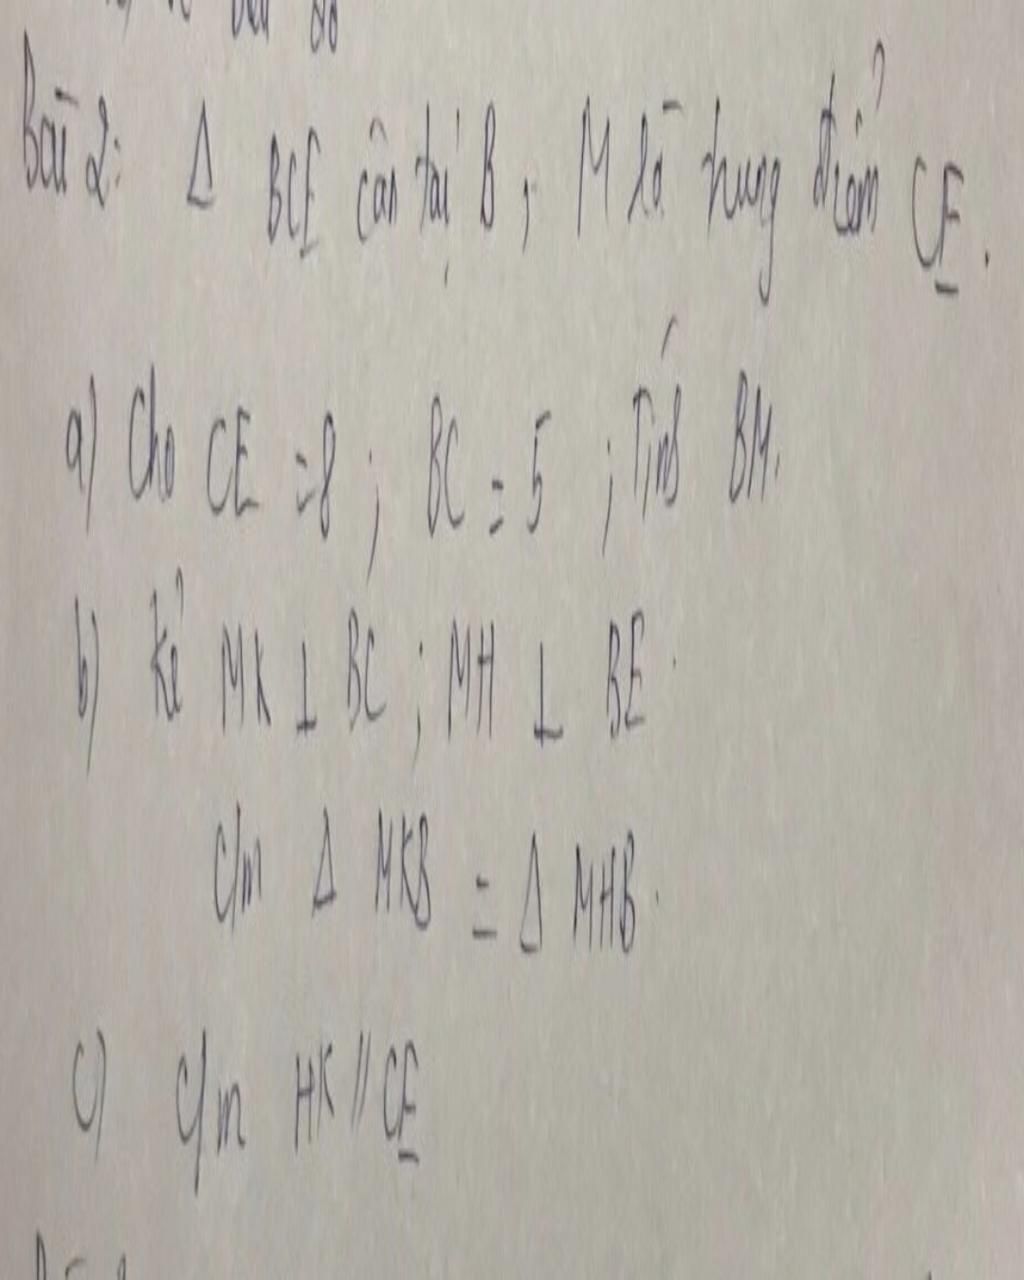 Bài 2: Δ BCE cân tại B, M là trung điểm CE.
a) Cho CE = 8; BC = 5; Tính BM.
b) Kẻ MK ⊥ BC; MH ⊥ BE.
c/m Δ MKB = Δ MHB.
c) c/m HK // CE